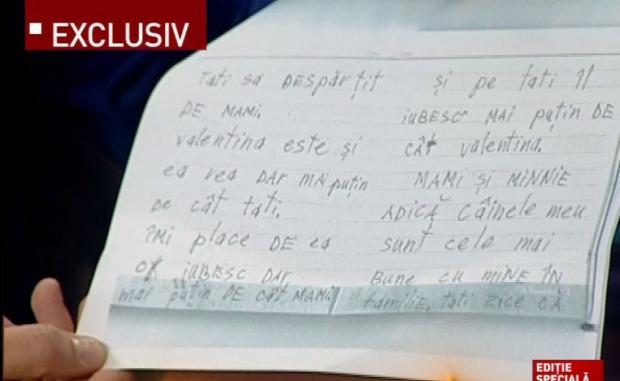 EXCLUSIV
Tati sa DESPĂRȚIT
DE MAMI.
valentina este și
ea rea DAR MAI puțin
De cât tati.
ÎMI place DE ea
O iUBESC DAR
mai puțin DE cât MAMi
și pe tati îl
iUBESC MAI puțin DE
cât valentina.
MAMi și MiNNiE
ADICĂ CâiNele meu
sunt cele mai
Bune cu miNE ÎN
familie, tati zice CĂ
EDIȚIE
SPECIALĂ